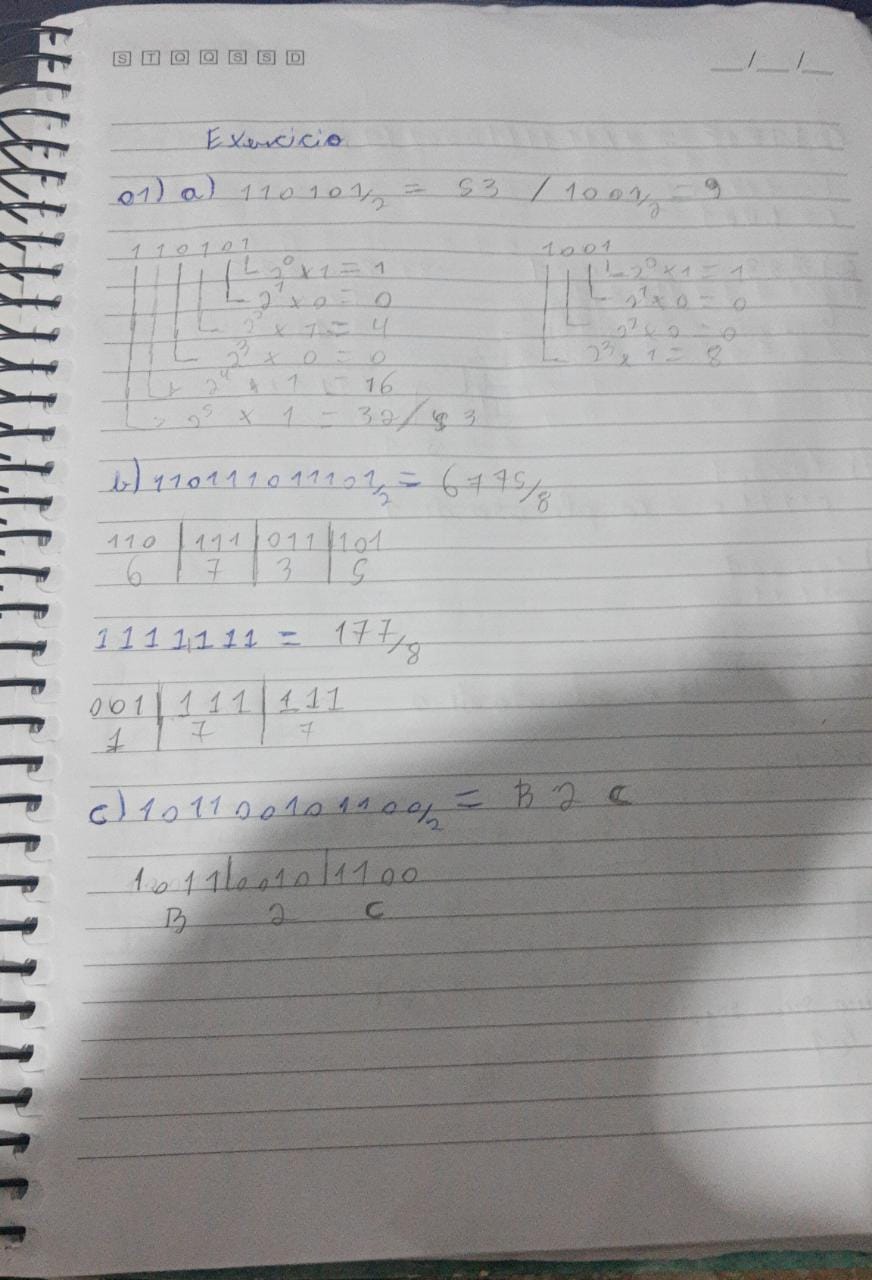 S T Q Q S S D
__/__/__
Exercicio
01) a) 110101/2 = 53 / 1001/2 = 9
110101
2⁰ x 1 = 1
2¹ x 0 = 0
2² x 1 = 4
2³ x 0 = 0
2⁴ x 1 = 16
2⁵ x 1 = 32/53
1001
2⁰ x 1 = 1
2¹ x 0 = 0
2² x 0 = 0
2³ x 1 = 8
b) 110111011101/2 = 6775/8
110 | 111 | 011 | 101
6 7 3 5
1111111 = 177/8
001 | 111 | 111
1 7 7
c) 101100101100/2 = B 2 C
1011 | 0010 | 1100
B 2 C